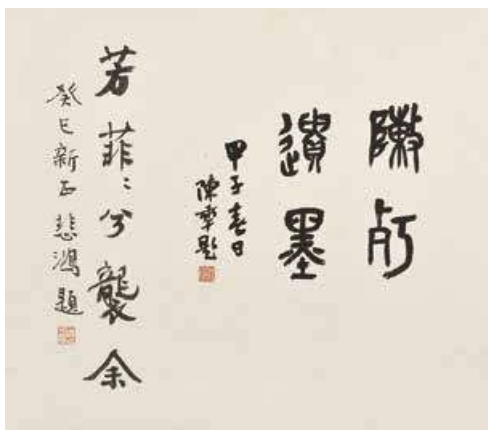 陳㱙
遺墨
甲子春日
陳 題
芳菲〻兮襲余
癸巳新正悲鴻題